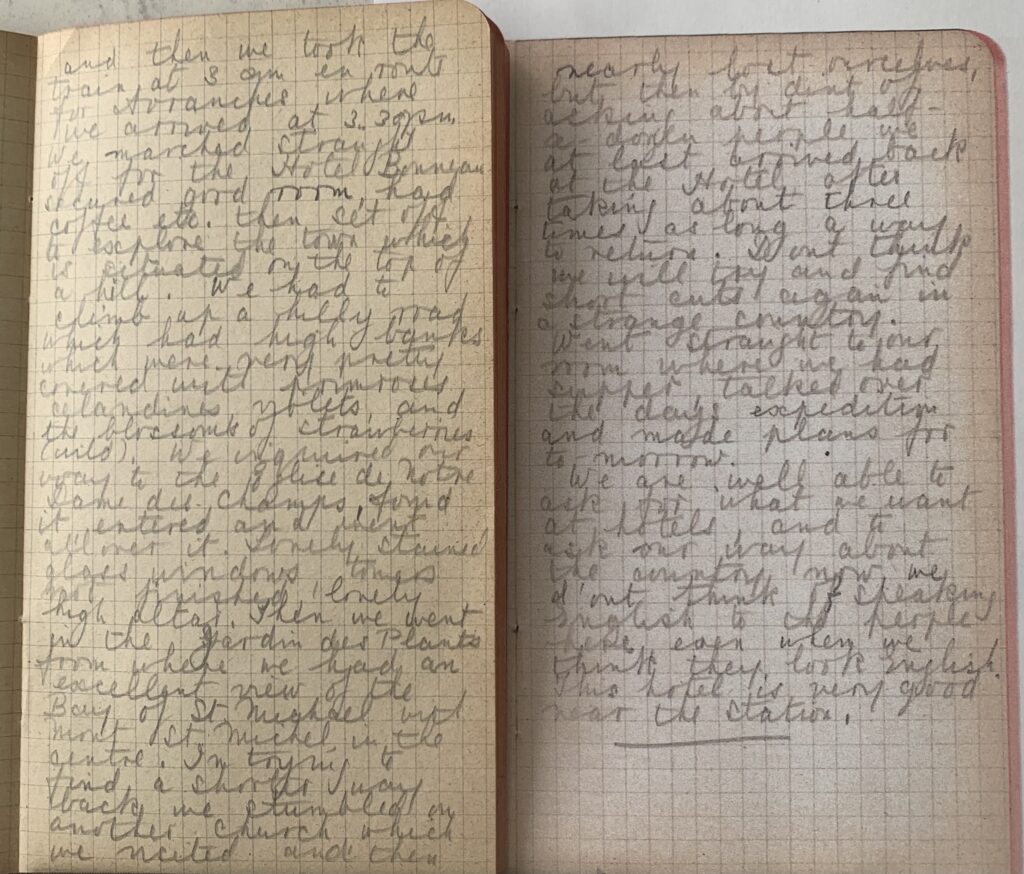 and then we took the
train at 3 pm en route
for Avranches where
we arrived at 3.39pm.
We marched straight
off for the Hotel Bonneau
secured good room, had
coffee etc. then set off
to explore the town which
is situated on the top of
a hill. We had to
climb up a hilly road
which had high banks
which were very pretty
covered with primroses,
celandines, violets, and
the blossoms of strawberries
(wild). We inquired our
way to the Eglise de Notre
Dame des Champs, found
it entered and went
all over it. Lovely stained
glass windows, towers
not finished, lovely
high altar. Then we went
in the Jardin des Plants
from where we had an
excellent view of the
Bay of St Michael with
Mont St. Michel in the
centre. In trying to
find a shorter way
back we stumbled on
another church which
we visited and then
nearly lost ourselves,
but then by dint of
asking about half-
a-dozen people we
at last arrived back
at the Hotel after
taking about three
times as long a way
to return. Dont think
we will try and find
short cuts again in
a strange country.
Went straight to our
room where we had
supper, talked over
the days expedition
and made plans for
to-morrow.
We are well able to
ask for what we want
at hotels, and to
ask our way about
the country, now we
d'ont think of speaking
English to the people
here even when we
think they look English.
This hotel is very good
near the station.